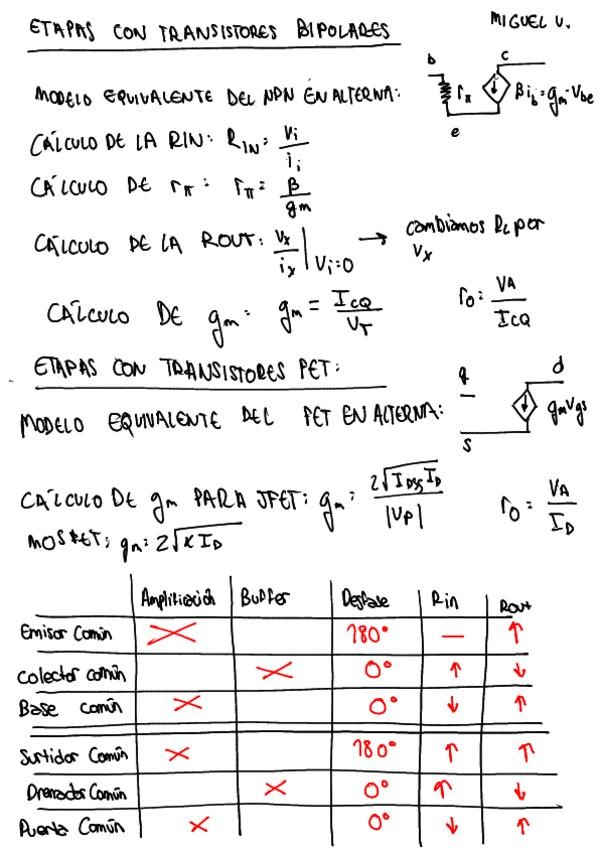 ETAPAS CON TRANSISTORES BIPOLARES
MIGUEL V.
MODELO EQUIVALENTE DEL NPN EN ALTERNA:
b rπ c βi_b = g_m·V_be e
CÁLCULO DE LA RIN: R_IN = Vi / i_i
CÁLCULO DE rπ: rπ = β / gm
CÁLCULO DE LA ROUT: Vx / ix | Vi=0 → cambiamos RL por Vx
CÁLCULO DE gm: gm = I_CQ / V_T
ro = VA / I_CQ
ETAPAS CON TRANSISTORES FET:
MODELO EQUIVALENTE DEL FET EN ALTERNA:
g d g_m V_gs s
CÁLCULO DE gm PARA JFET: gm = 2√(I_DSS I_D) / |Vp|
ro = VA / I_D
MOSFET: gm = 2√(K I_D)
Amplificación Buffer Desfase Rin Rout
Emisor Común X 180° — ↑
Colector común X 0° ↑ ↓
Base común X 0° ↓ ↑
Surtidor Común X 180° ↑ ↑
Drenador Común X 0° ↑ ↓
Puerta Común X 0° ↓ ↑